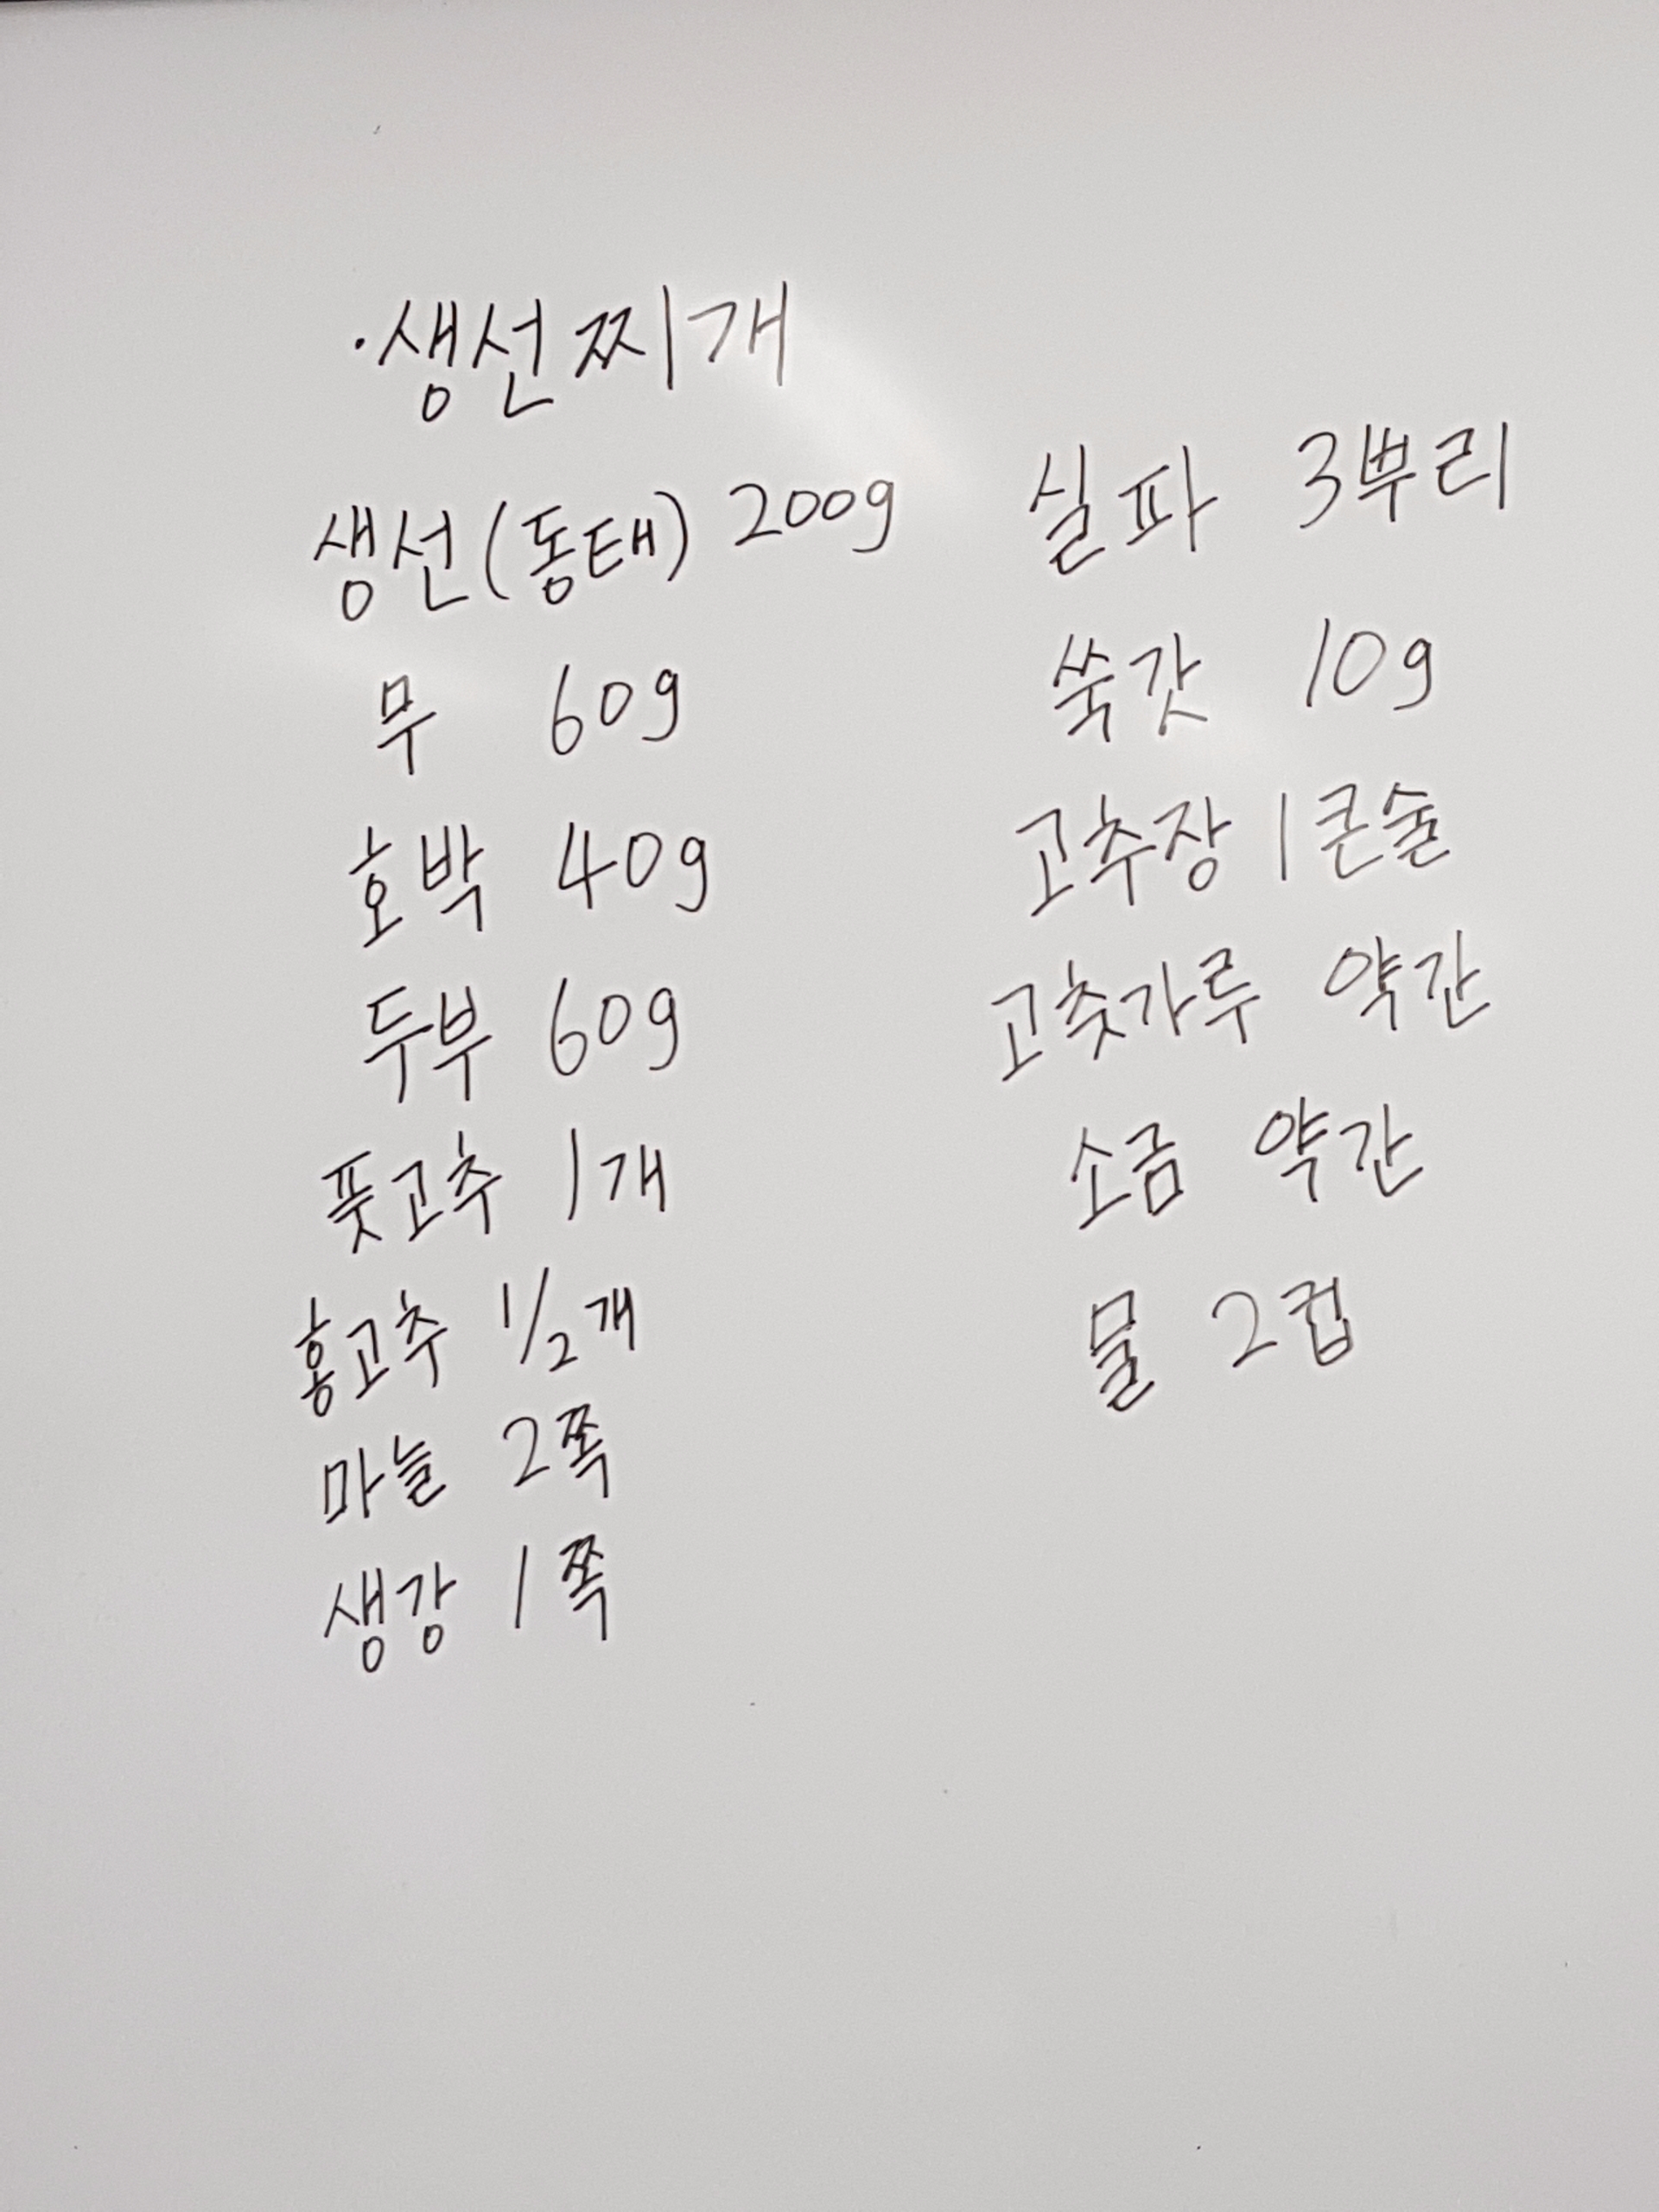 ·생선찌개
생선(동태) 200g
무 60g
호박 40g
두부 60g
풋고추 1개
홍고추 1/2개
마늘 2쪽
생강 1쪽
실파 3뿌리
쑥갓 10g
고추장 1큰술
고춧가루 약간
소금 약간
물 2컵